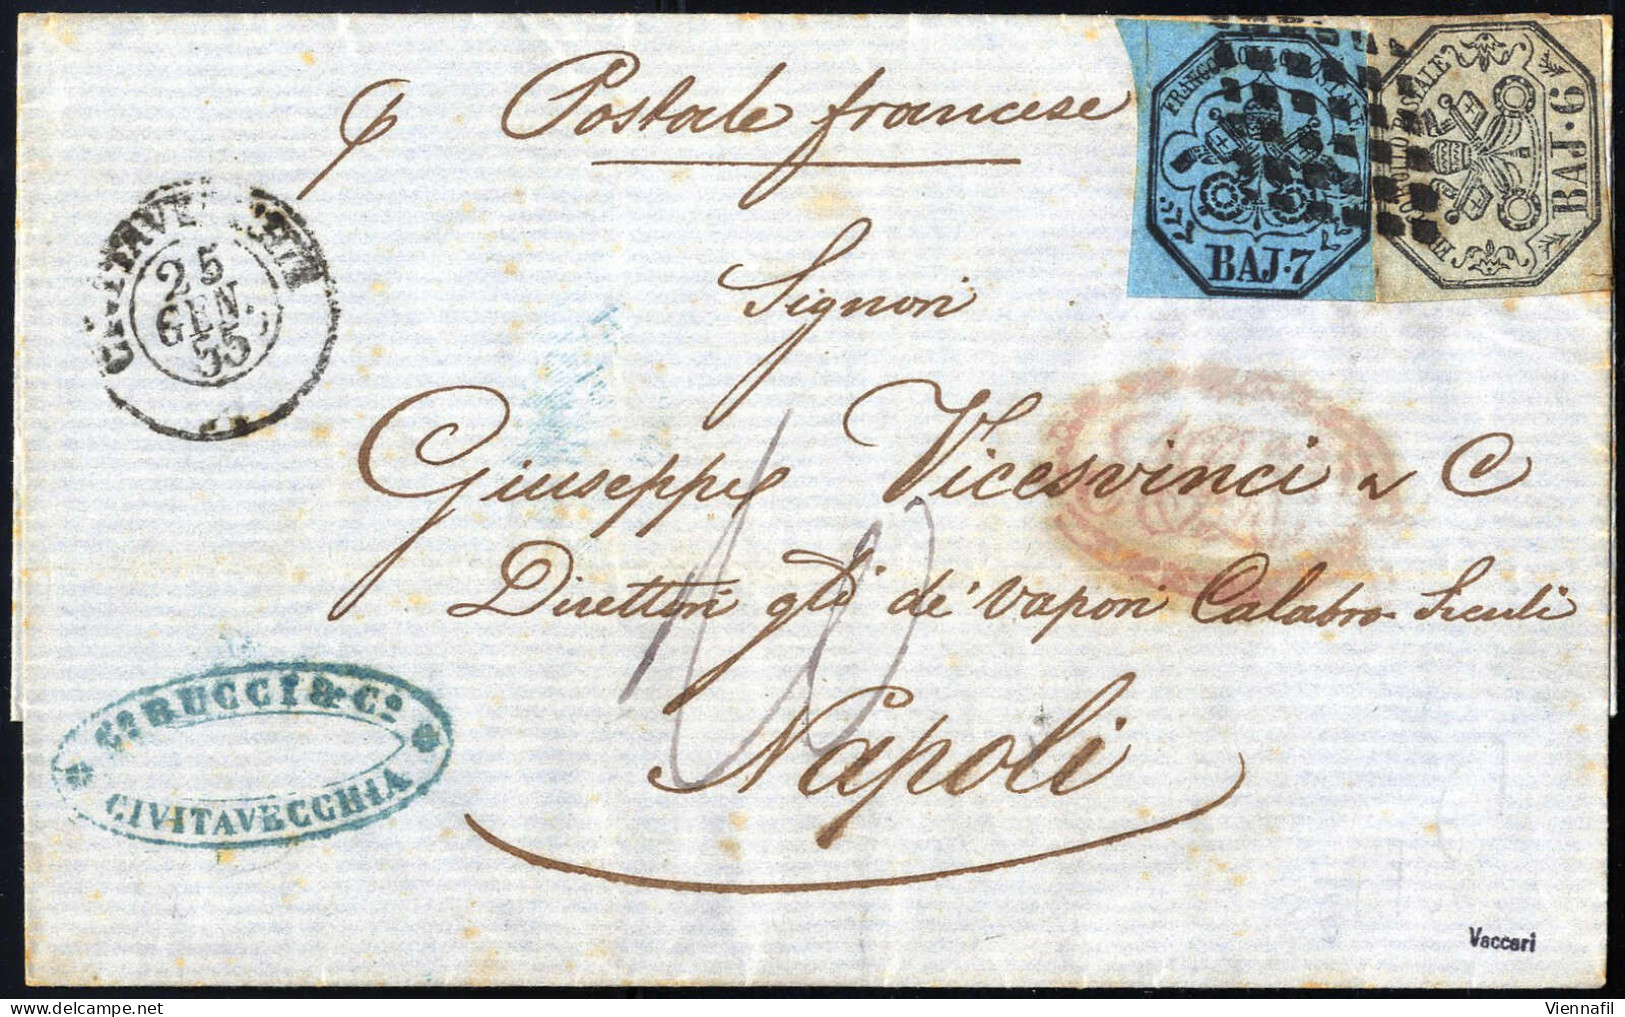 p Postale francese
FRANCO BOLLO POSTALE
BAJ·7
FRANCO BOLLO POSTALE
BAJ·6
CIVITAVECCHIA
25
GEN.
55
Signori
Giuseppe Vicesvinci e C
Direttori gli de' Vapori Calabro-Siculi
Napoli
10
CARUCCI & Co.
CIVITAVECCHIA
Vaccari
Viennafil